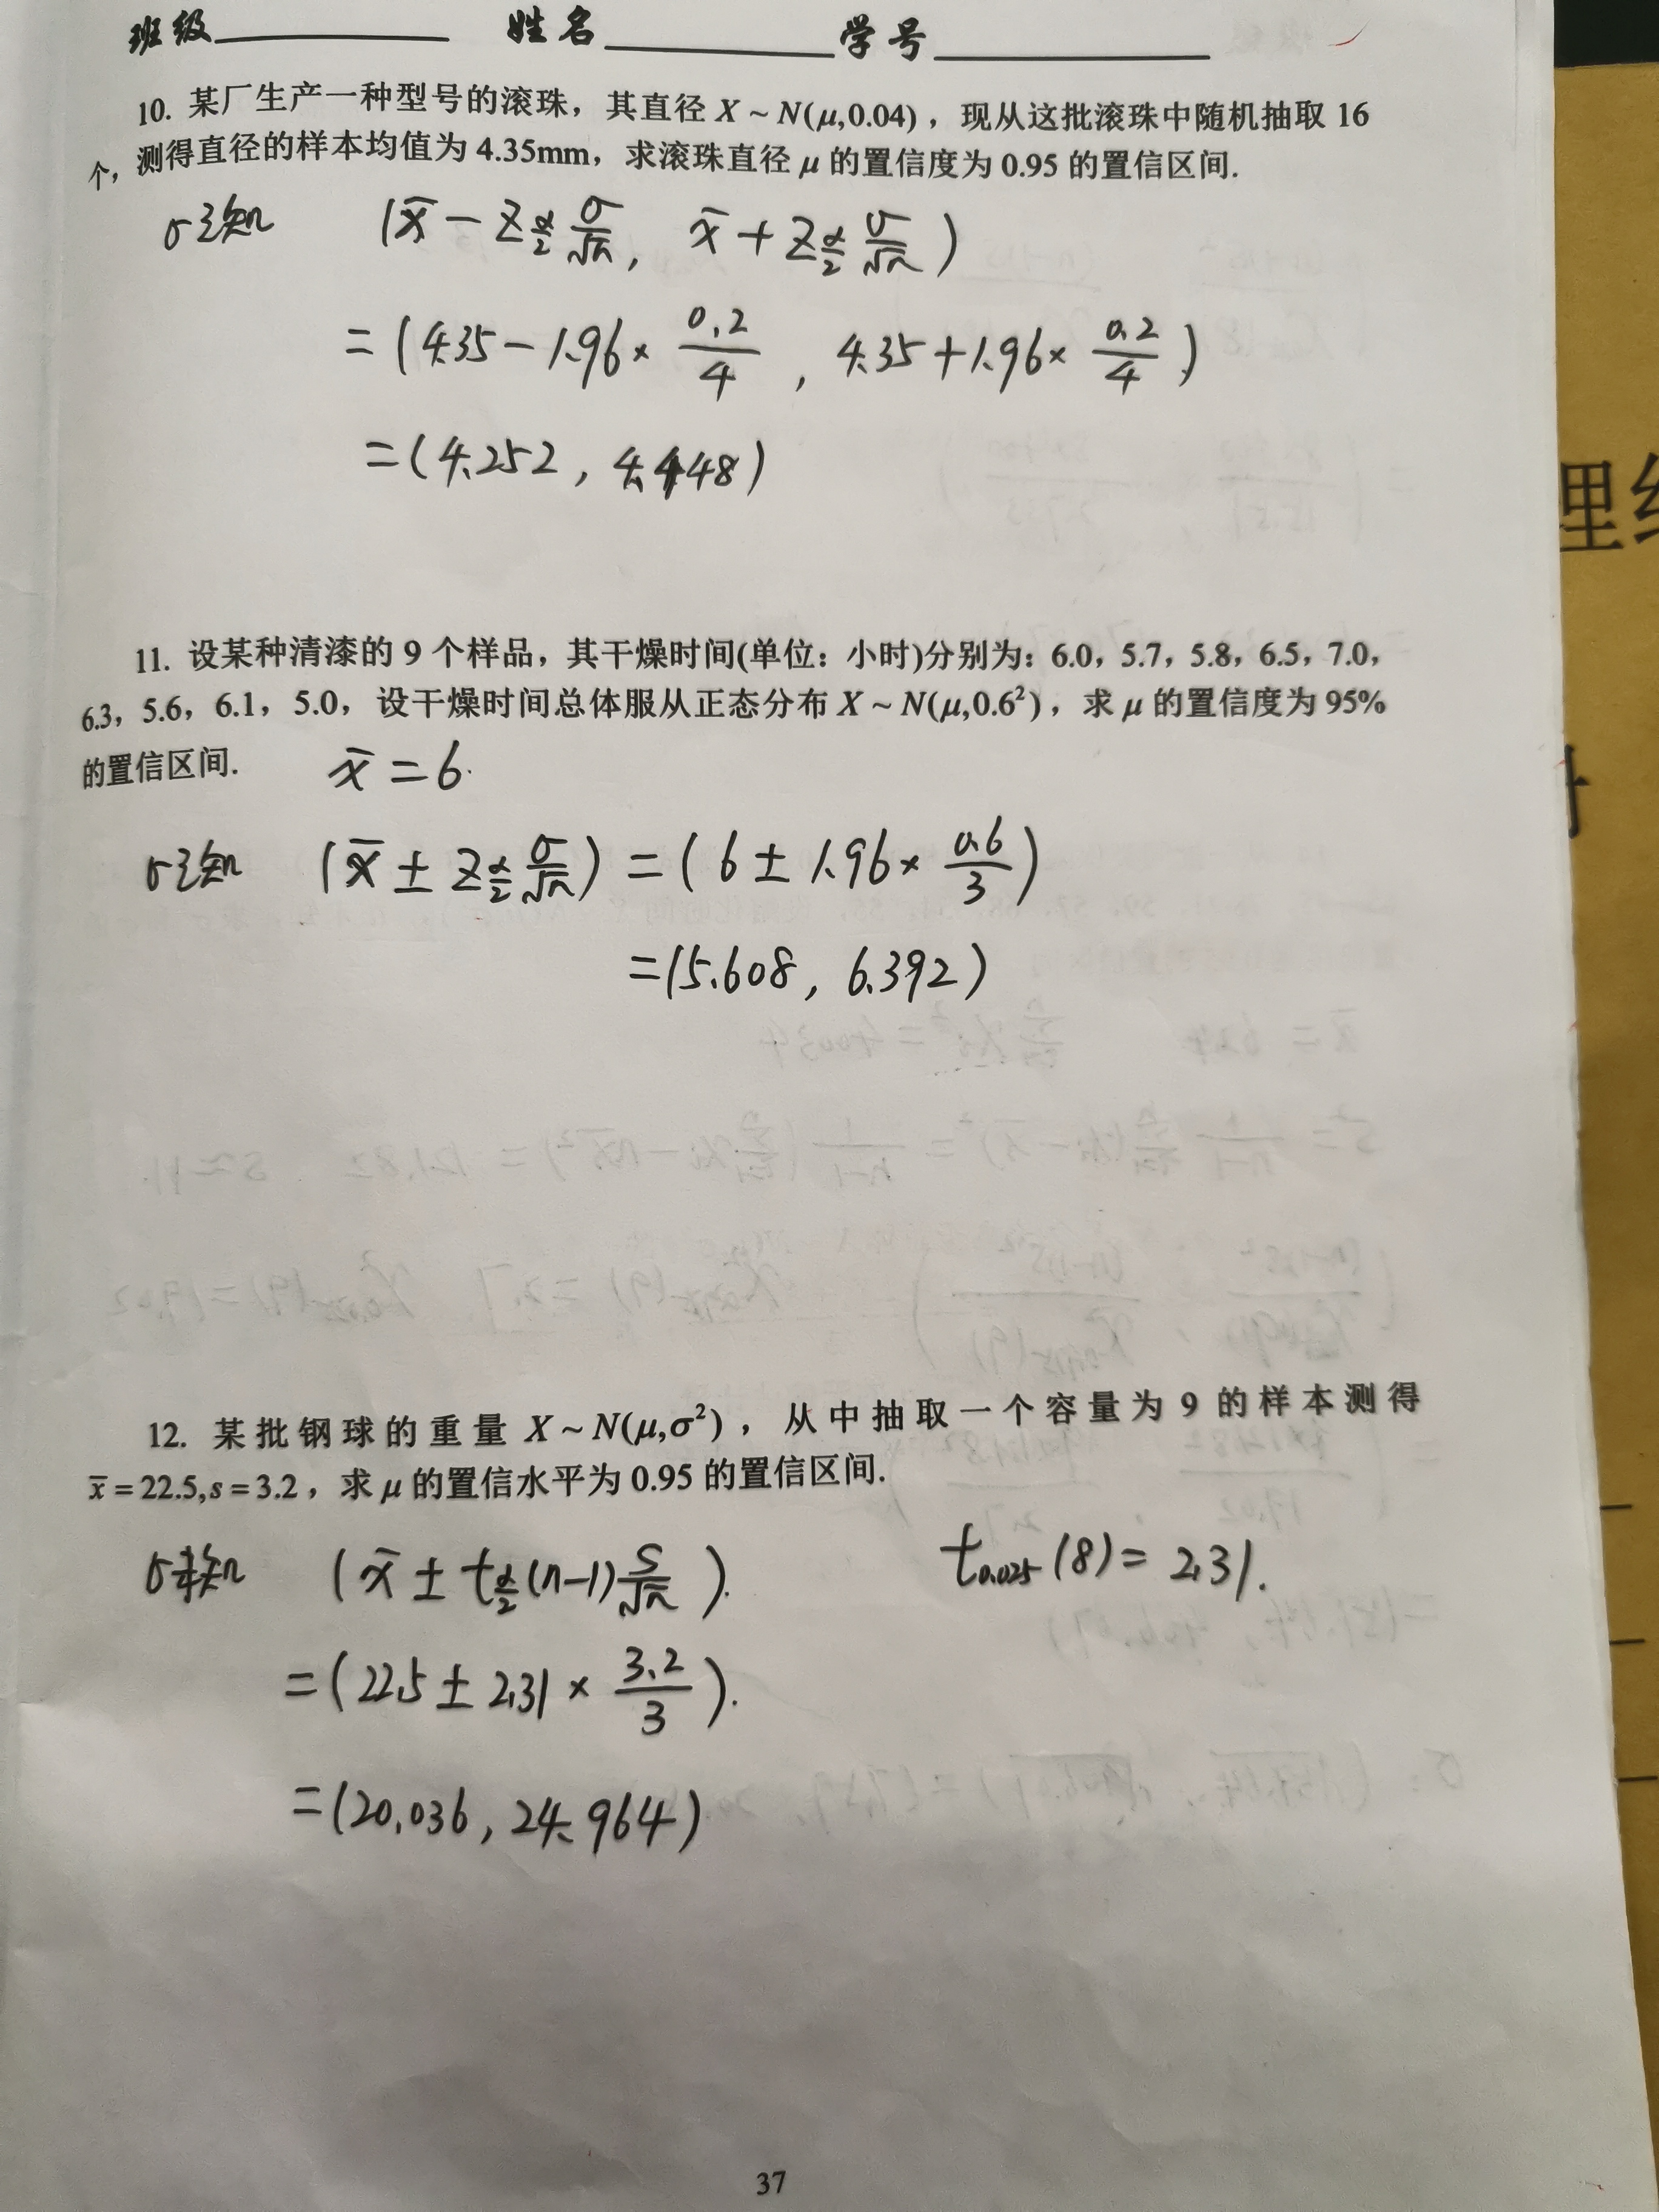 班级 姓名 学号
10. 某厂生产一种型号的滚珠，其直径 X ~ N(μ,0.04)，现从这批滚珠中随机抽取 16
个，测得直径的样本均值为 4.35mm，求滚珠直径 μ 的置信度为 0.95 的置信区间.
σ已知 (x̄ − z_{α/2} σ/√n, x̄ + z_{α/2} σ/√n)
= (4.35 − 1.96 × 0.2/4, 4.35 + 1.96 × 0.2/4)
= (4.252, 4.448)
11. 设某种清漆的 9 个样品，其干燥时间(单位：小时)分别为：6.0，5.7，5.8，6.5，7.0，
6.3，5.6，6.1，5.0，设干燥时间总体服从正态分布 X ~ N(μ,0.6²)，求 μ 的置信度为 95%
的置信区间. x̄ = 6.
σ已知 (x̄ ± z_{α/2} σ/√n) = (6 ± 1.96 × 0.6/3)
= (5.608, 6.392)
12. 某批钢球的重量 X ~ N(μ,σ²)，从中抽取一个容量为 9 的样本测得
x̄ = 22.5, s = 3.2，求 μ 的置信水平为 0.95 的置信区间.
σ未知 (x̄ ± t_{α/2}(n−1) S/√n). t_{0.025}(8) = 2.31.
= (22.5 ± 2.31 × 3.2/3).
= (20.036, 24.964)
37
理